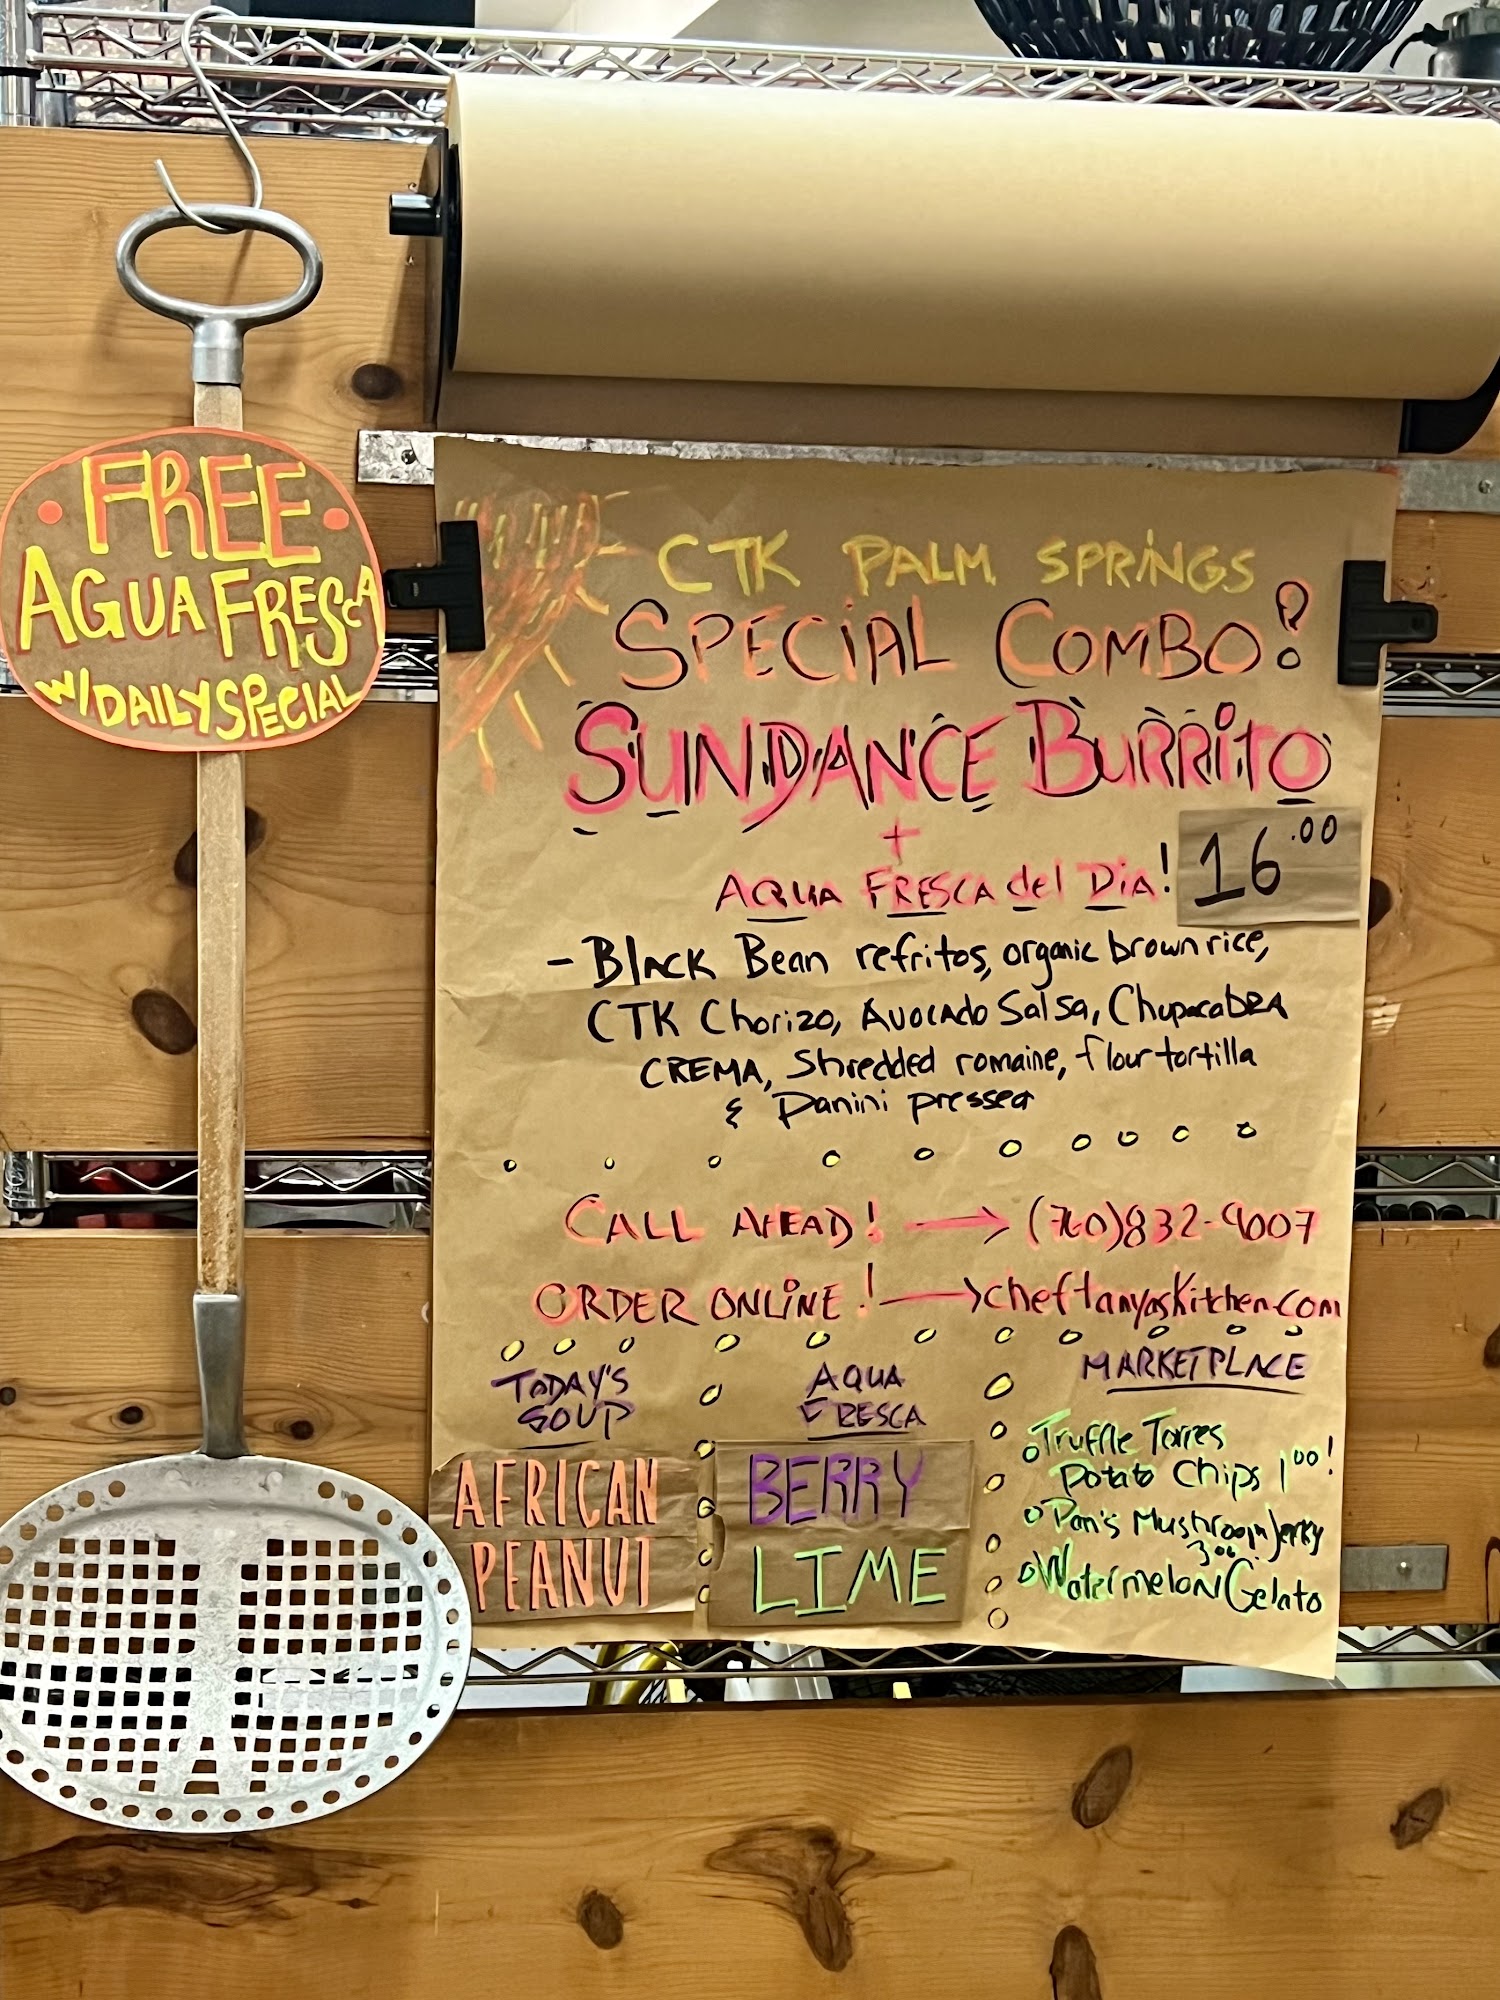 • FREE •
AGUA FRESCA
W/ DAILY SPECIAL
CTK PALM SPRINGS
SPECIAL COMBO!
SUNDANCE BURRITO
+
AQUA FRESCA del DiA! 16.00
- Black Bean refritos, organic brown rice,
CTK Chorizo, Avocado Salsa, Chupacabra
CREMA, Shredded romaine, flour tortilla
& Panini pressed
CALL AHEAD! → (760)832-9007
ORDER ONLINE! → cheftanyaskitchen.com
TODAY'S
SOUP
AFRICAN
PEANUT
AQUA
FRESCA
BERRY
LIME
MARKETPLACE
Truffle Torres
Potato Chips 1.00!
Pan's Mushroom Jerky
3.00
Watermelon Gelato